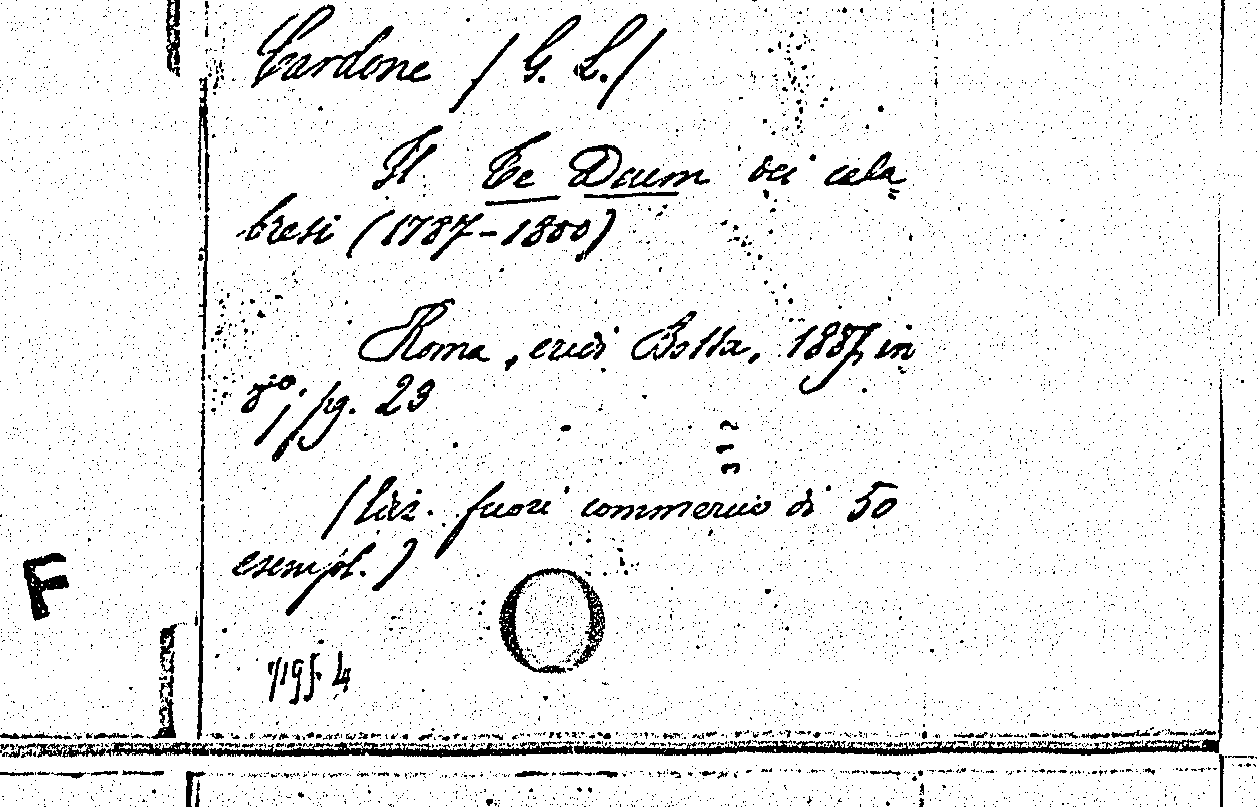 Cardone (G. L.)
Il Te Deum dei cala=
bresi (1787-1800)
Roma, eredi Botta, 1887, in
8º, pg. 29
(Ediz. fuori commercio di 50
esempl.)
F